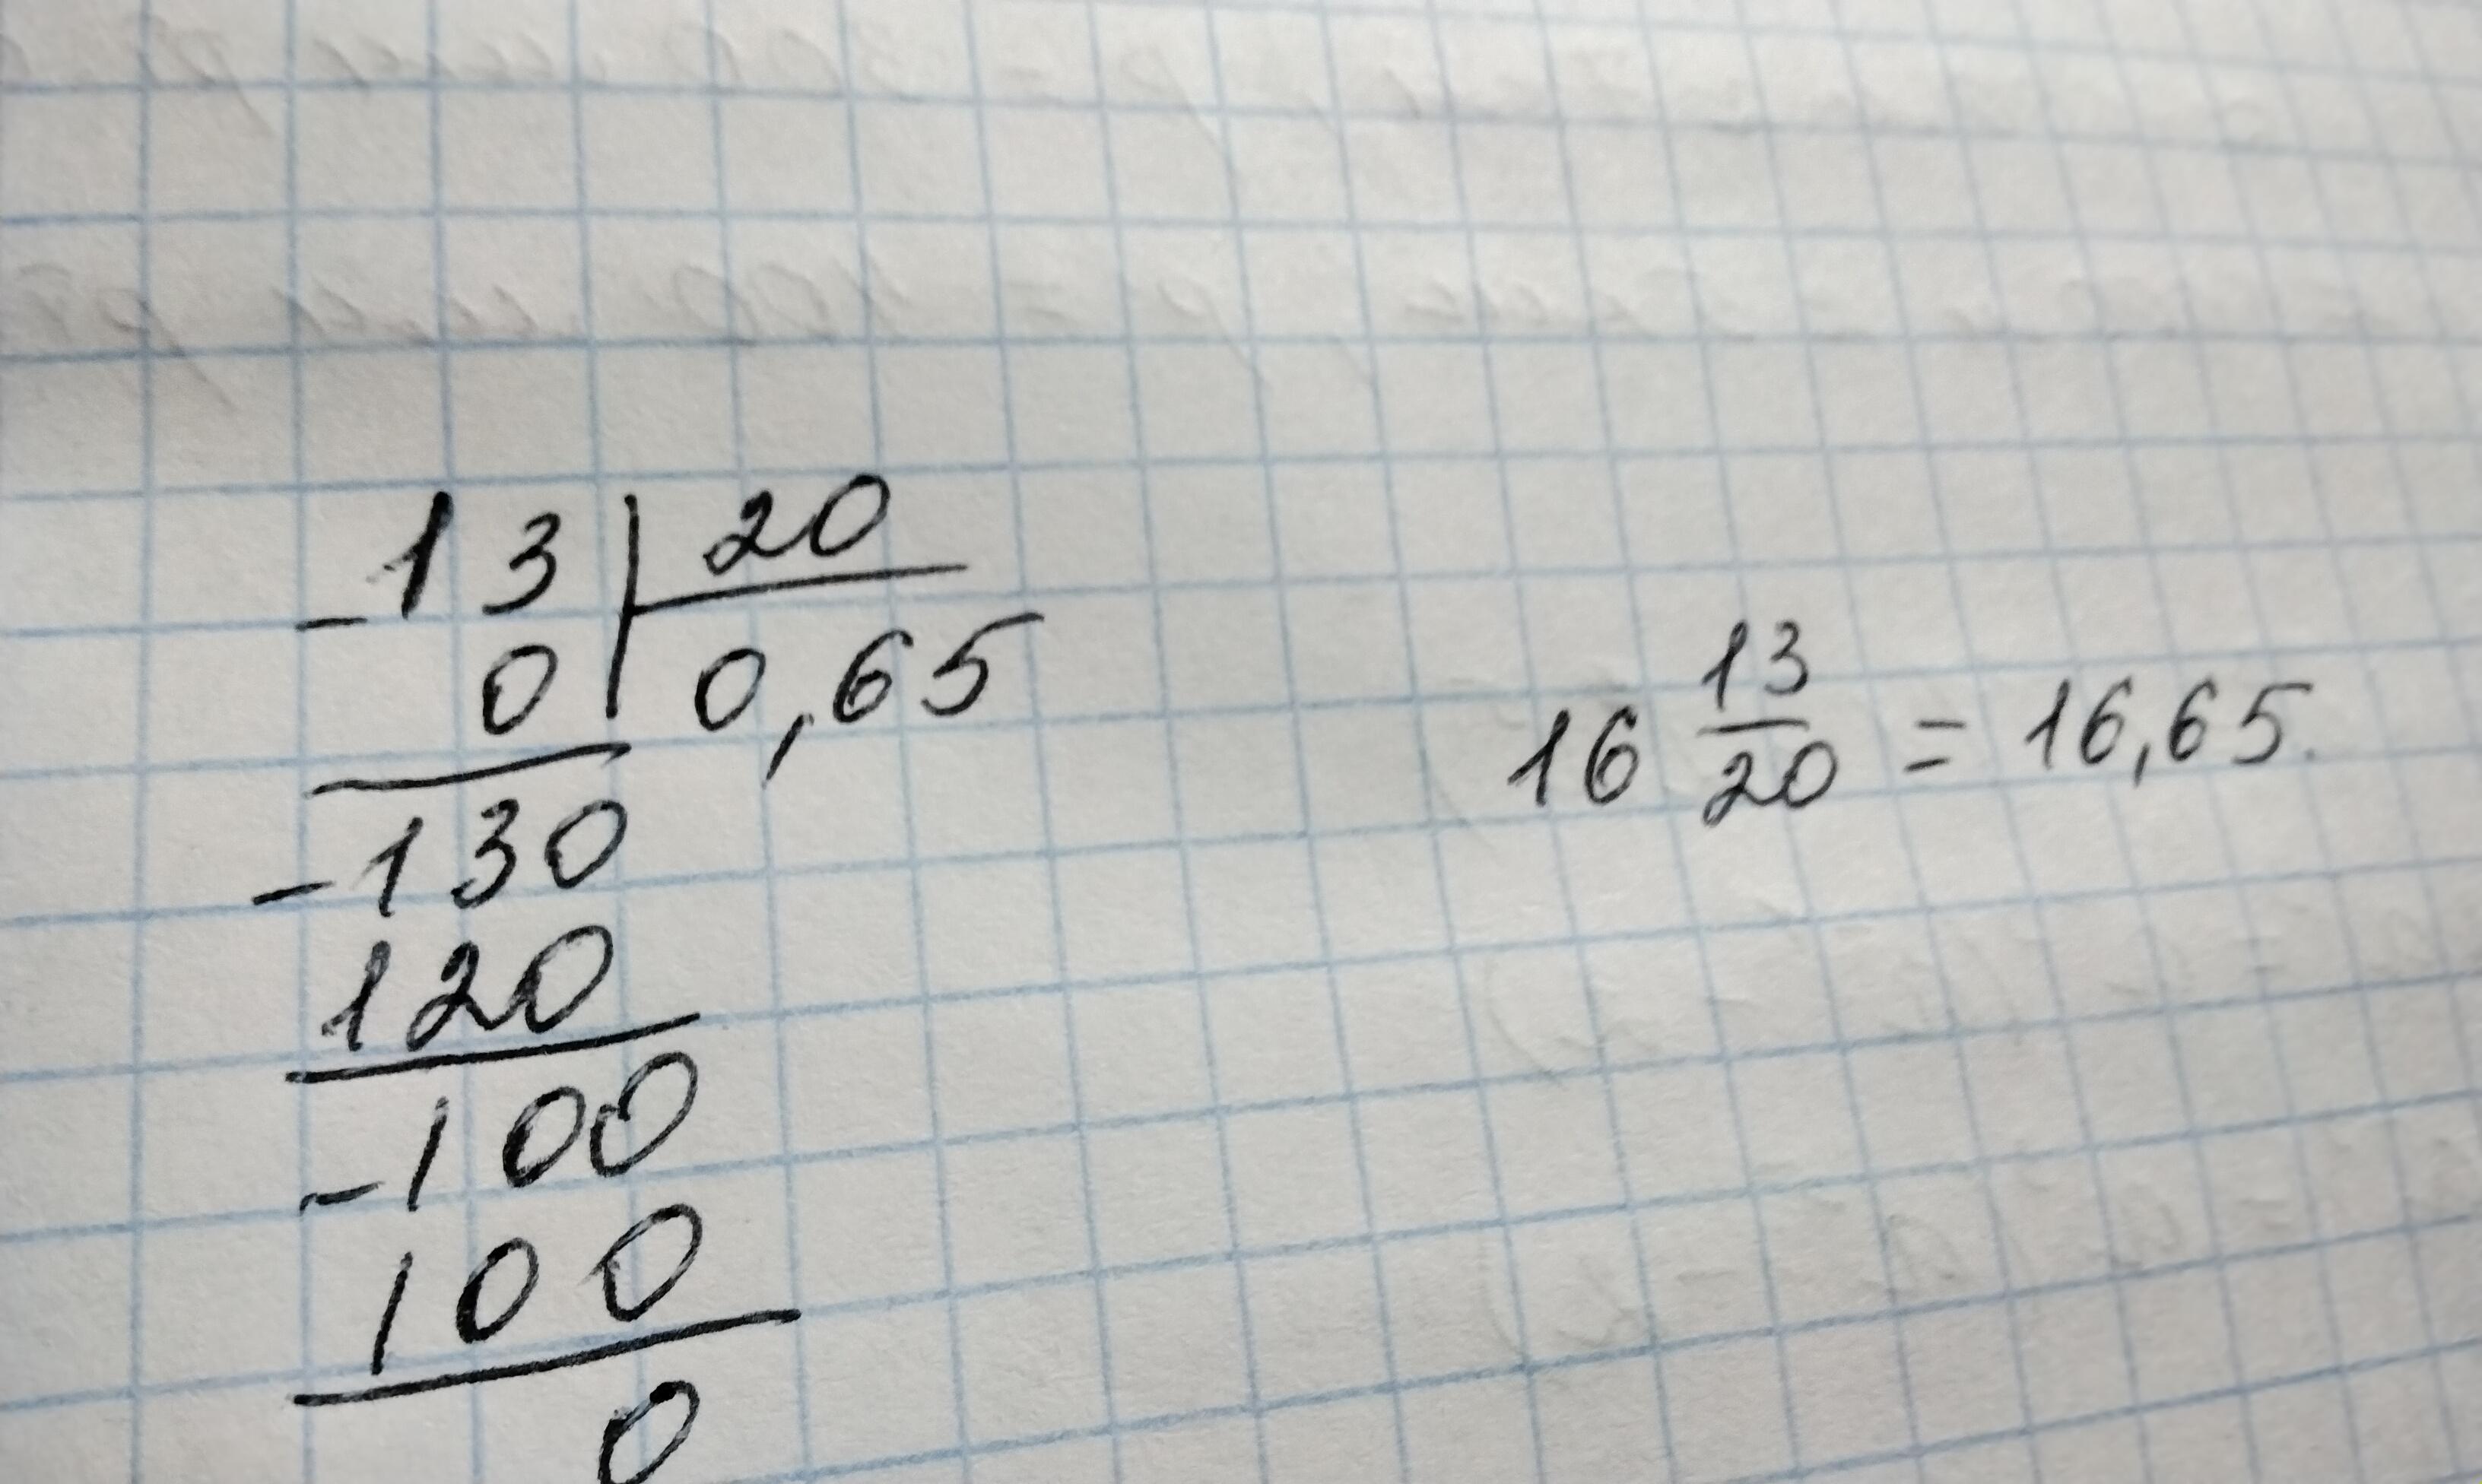 -13 | 20
0 | 0,65
-130
120
-100
100
0
16 13/20 = 16,65.